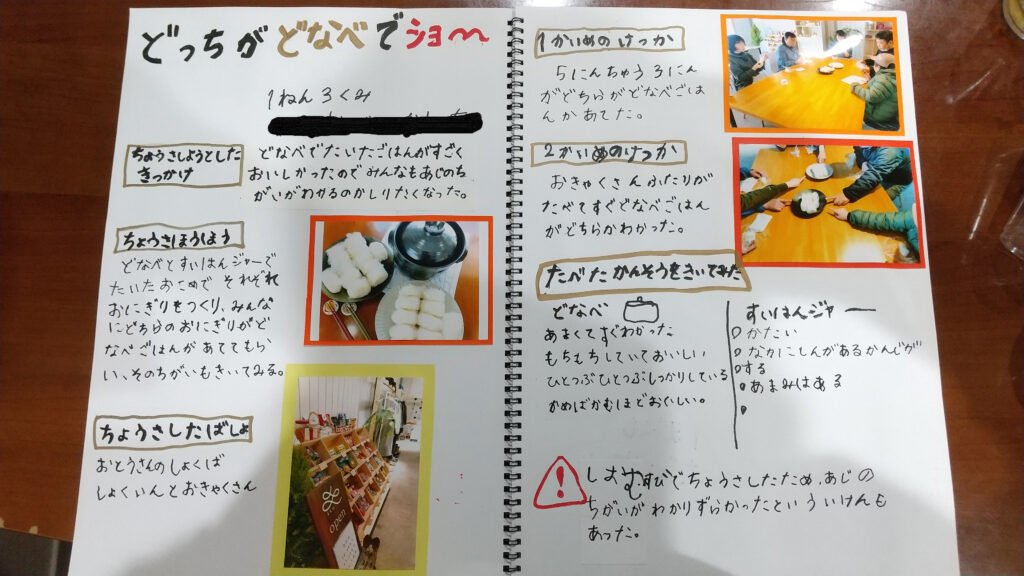 どっちがどなべでショ〜
1ねん3くみ
ちょうさしようとした
きっかけ
どなべでたいたごはんがすごく
おいしかったのでみんなもあじのち
がいがわかるのかしりたくなった。
ちょうさほうほう
どなべとすいはんジャーで
たいたおこめで それぞれ
おにぎりをつくり、みんな
にどち分のおにぎりがど
なべごはんが あててもら
い、そのちがいもきいてみる。
open
ちょうさしたばしょ
おとうさんのしょくば
しょくいんとおきゃくさん
1かいめのけっか
5にんちゅう3にん
がどちらがどなべごは
んかあてた。
2かいめのけっか
おきゃくさんふたりが
たべてすぐどなべごはん
がどちらかわかった。
たべたかんそうをきいてみた
どなべ
あまくてすぐわかった
もちもちしていておいしい
ひとつぶひとつぶしっかりしている
かめばかむほどおいしい。
すいはんジャー
かたい
なかにしんがあるかんじが
する
あまみはある
しおむすびでちょうさしたため、あじの
ちがいがわかりずらかったといういけんも
あった。